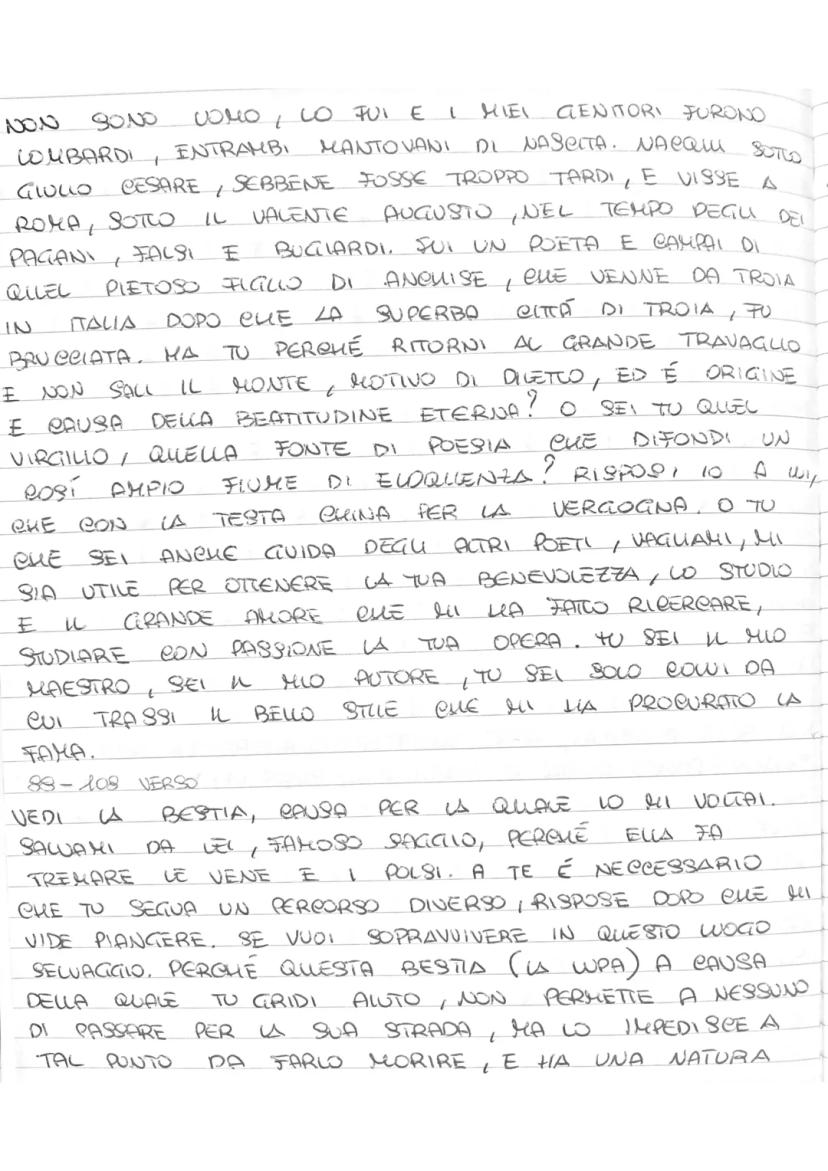 NON SONO UOMO, LO FUI E I MIEI GENITORI FURONO
LOMBARDI, ENTRAMBI MANTOVANI DI NASCITA. NACQUI SOTTO
GIULIO CESARE, SEBBENE FOSSE TROPPO TARDI, E VISSE A
ROMA, SOTTO IL VALENTE AUGUSTO, NEL TEMPO DEGLI DEI
PAGANI, FALSI E BUGIARDI. FUI UN POETA E CAMPAI DI
QUEL PIETOSO FIGLIO DI ANCHISE, CHE VENNE DA TROIA
IN ITALIA DOPO CHE LA SUPERBA CITTÁ DI TROIA, FU
BRUCCIATA. MA TU PERCHÉ RITORNI AL GRANDE TRAVAGLIO
E NON SALI IL MONTE, MOTIVO DI DILETTO, ED É ORIGINE
E CAUSA DELLA BEATITUDINE ETERNA? O SEI TU QUEL
VIRGILIO, QUELLA FONTE DI POESIA CHE DIFONDI UN
COSÍ AMPIO FIUME DI ELOQUENZA? RISPOSI IO A LUI,
CHE CON LA TESTA CHINA PER LA VERGOGNA. O TU
CHE SEI ANCHE GUIDA DEGLI ALTRI POETI, VAGLIAMI, MI
SIA UTILE PER OTTENERE LA TUA BENEVOLEZZA, LO STUDIO
E IL GRANDE AMORE CHE MI HA FATTO RICERCARE,
STUDIARE CON PASSIONE LA TUA OPERA. TU SEI IL MIO
MAESTRO, SEI IL MIO AUTORE, TU SEI SOLO COLUI DA
CUI TRASSI IL BELLO STILE CHE MI HA PROCURATO LA
FAMA.
88-108 VERSO
VEDI LA BESTIA, CAUSA PER LA QUALE IO MI VOLTAI.
SALVAMI DA LEI, FAMOSO SAGGIO, PERCHÉ ELLA FA
TREMARE LE VENE E I POLSI. A TE É NECCESSARIO
CHE TU SEGUA UN PERCORSO DIVERSO, RISPOSE DOPO CHE MI
VIDE PIANGERE. SE VUOI SOPRAVVIVERE IN QUESTO LUOGO
SELVAGGIO. PERCHÉ QUESTA BESTIA (LA LUPA) A CAUSA
DELLA QUALE TU GRIDI AIUTO, NON PERMETTE A NESSUNO
DI PASSARE PER LA SUA STRADA, MA LO IMPEDISCE A
TAL PUNTO DA FARLO MORIRE, E HA UNA NATURA